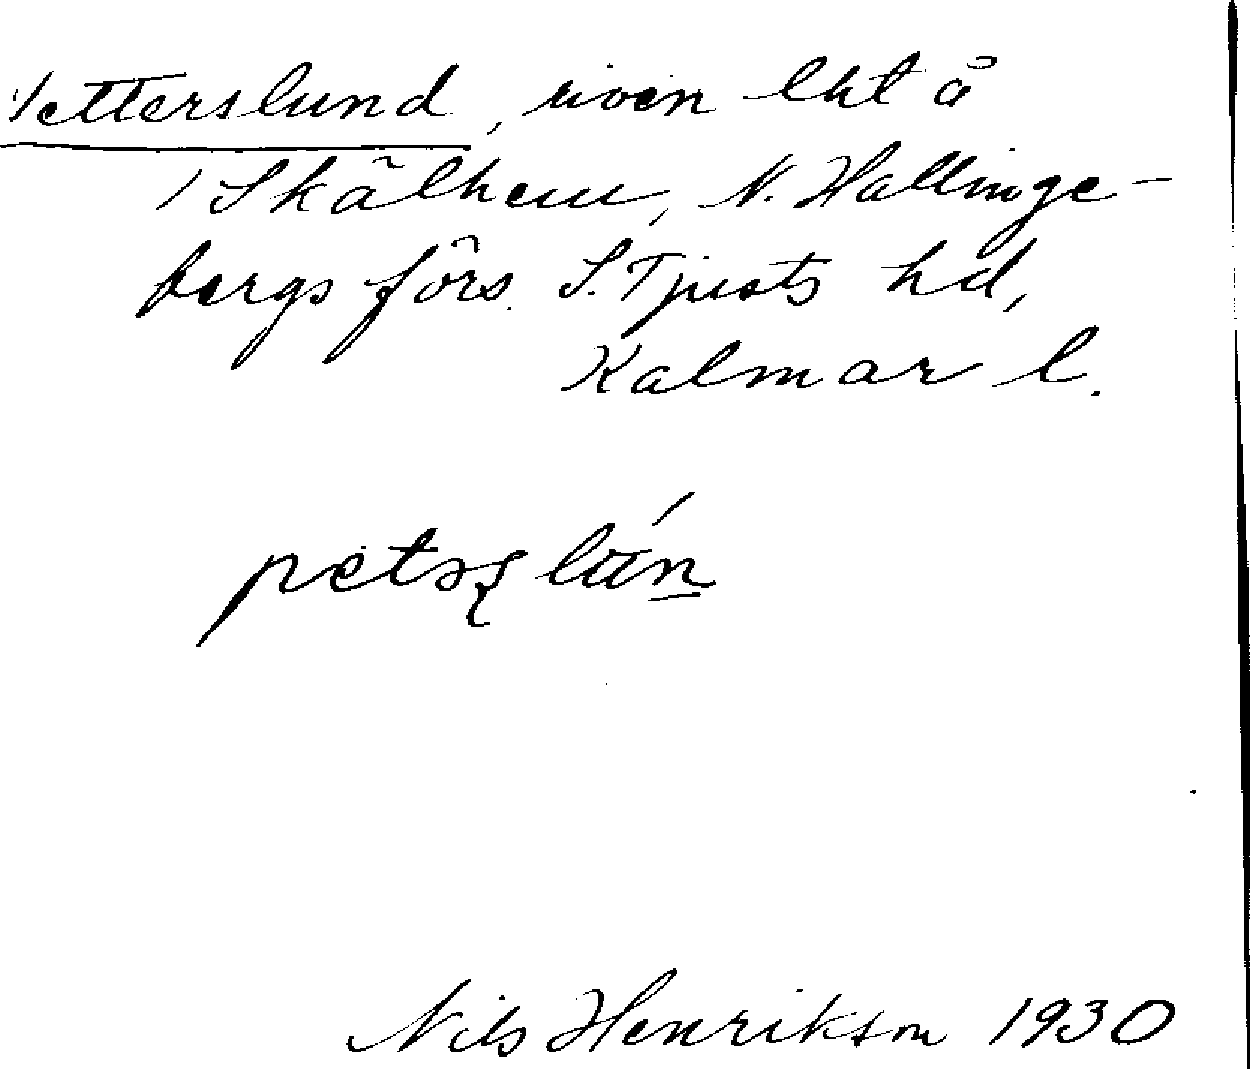 Petterslund, riven lht å
1 Skälhem, N. Hallinge-
bergs förs. S. Tjusts hd,
Kalmar l.
Nils Henrikson 1930